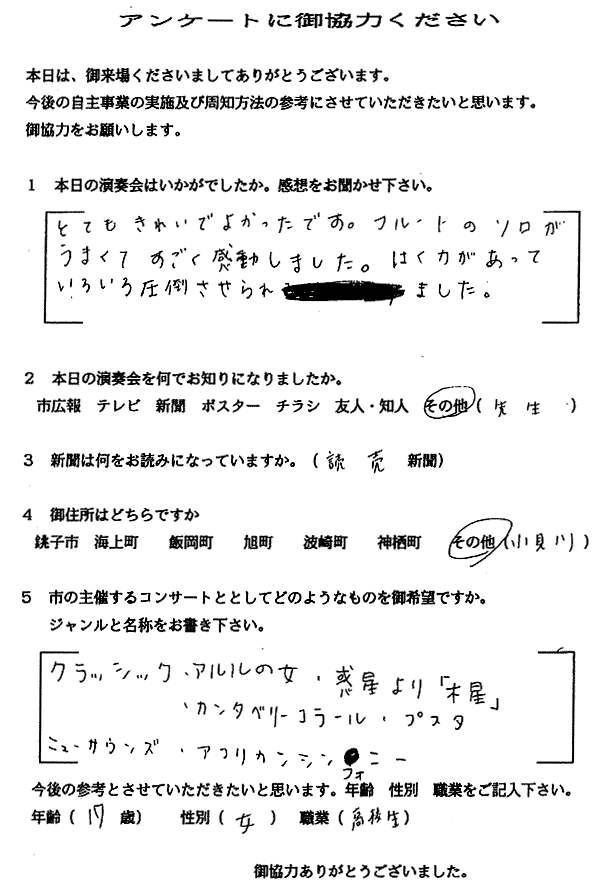 アンケートに御協力ください
本日は、御来場くださいましてありがとうございます。
今後の自主事業の実施及び周知方法の参考にさせていただきたいと思います。
御協力をお願いします。
1 本日の演奏会はいかがでしたか。感想をお聞かせ下さい。
とてもきれいでよかったです。フルートのソロが
うまくてすごく感動しました。はく力があって
いろいろ圧倒させられました。
2 本日の演奏会を何でお知りになりましたか。
市広報 テレビ 新聞 ポスター チラシ 友人・知人 その他(先生)
3 新聞は何をお読みになっていますか。(読売 新聞)
4 御住所はどちらですか
銚子市 海上町 飯岡町 旭町 波崎町 神栖町 その他(小見川)
5 市の主催するコンサートととしてどのようなものを御希望ですか。
ジャンルと名称をお書き下さい。
クラッシック・アルルの女・惑星より「木星」
・カンタベリーコラール・プスタ
ニューサウンズ・アフリカンシンフォニー
今後の参考とさせていただきたいと思います。年齢 性別 職業をご記入下さい。
年齢(17歳) 性別(女) 職業(高校生)
御協力ありがとうございました。